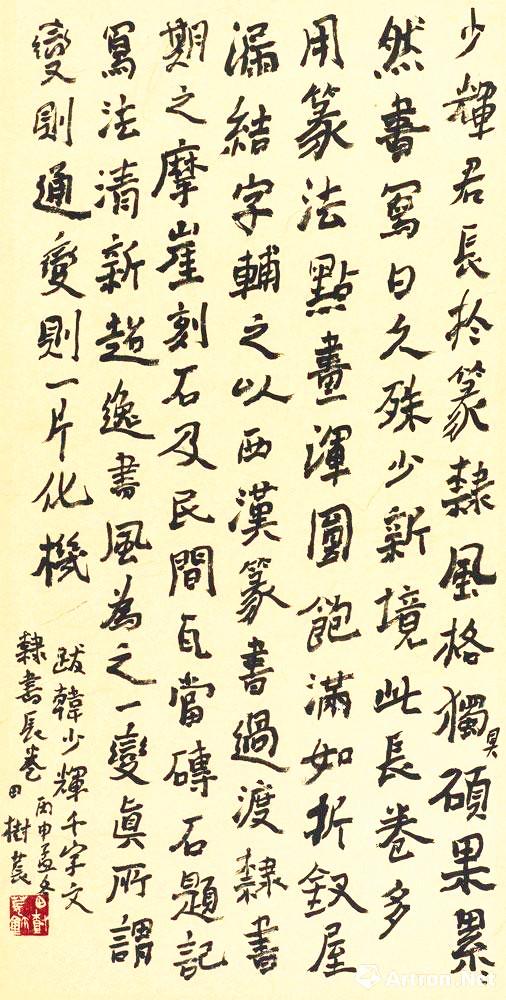 少輝君長於篆隸風格獨具碩果累
然書寫日久殊少新境此長卷多
用篆法點畫渾圓飽滿如折釵屋
漏結字輔之以西漢篆書過渡隸書
期之摩崖刻石及民間瓦當磚石題記
寫法清新超逸書風為之一變真所謂
變則通變則一片化機
跋韓少輝千字文
隸書長卷丙申孟冬
田樹萇
Artron.Net